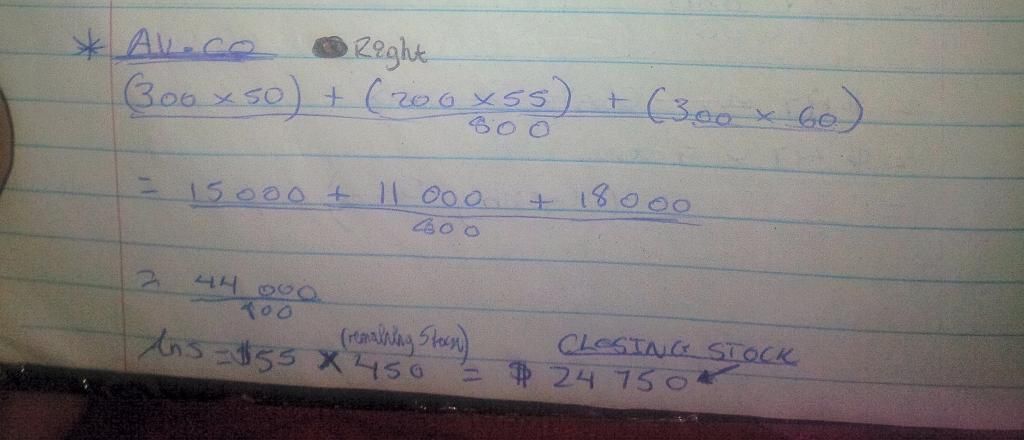 * AV.CO Right
(300 x 50) + (200 x 55) + (300 x 60)
800
= 15000 + 11 000 + 18000
800
= 44 000
800
Ans = $55 x 450 (remaining Stock) = $ 24 750
CLOSING STOCK